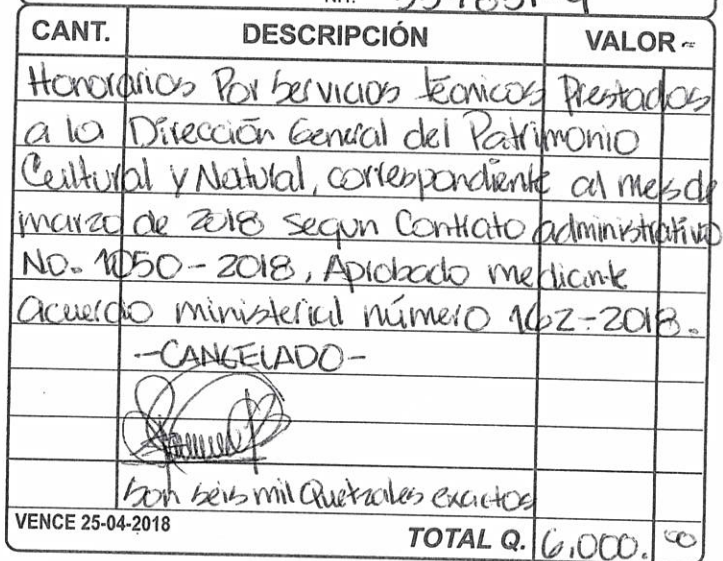 CANT. DESCRIPCIÓN VALOR
Honorarios Por Servicios técnicos Prestados
a la Dirección General del Patrimonio
Cultural y Natural, correspondiente al mes de
marzo de 2018 segun Contrato administrativo
No. 1050-2018, Aprobado mediante
acuerdo ministerial número 162-2018.
-CANCELADO-
Son seis mil Quetzales exactos
VENCE 25-04-2018 TOTAL Q. 6,000. 00